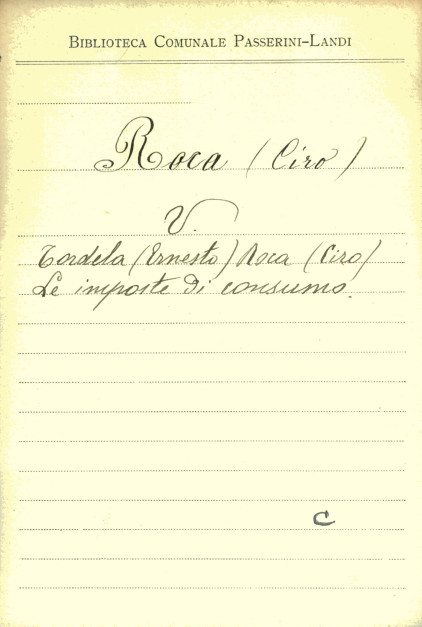 BIBLIOTECA COMUNALE PASSERINI-LANDI
Roca (Ciro)
V.
Tordela (Ernesto) Roca (Ciro)
Le imposte di consumo.
C